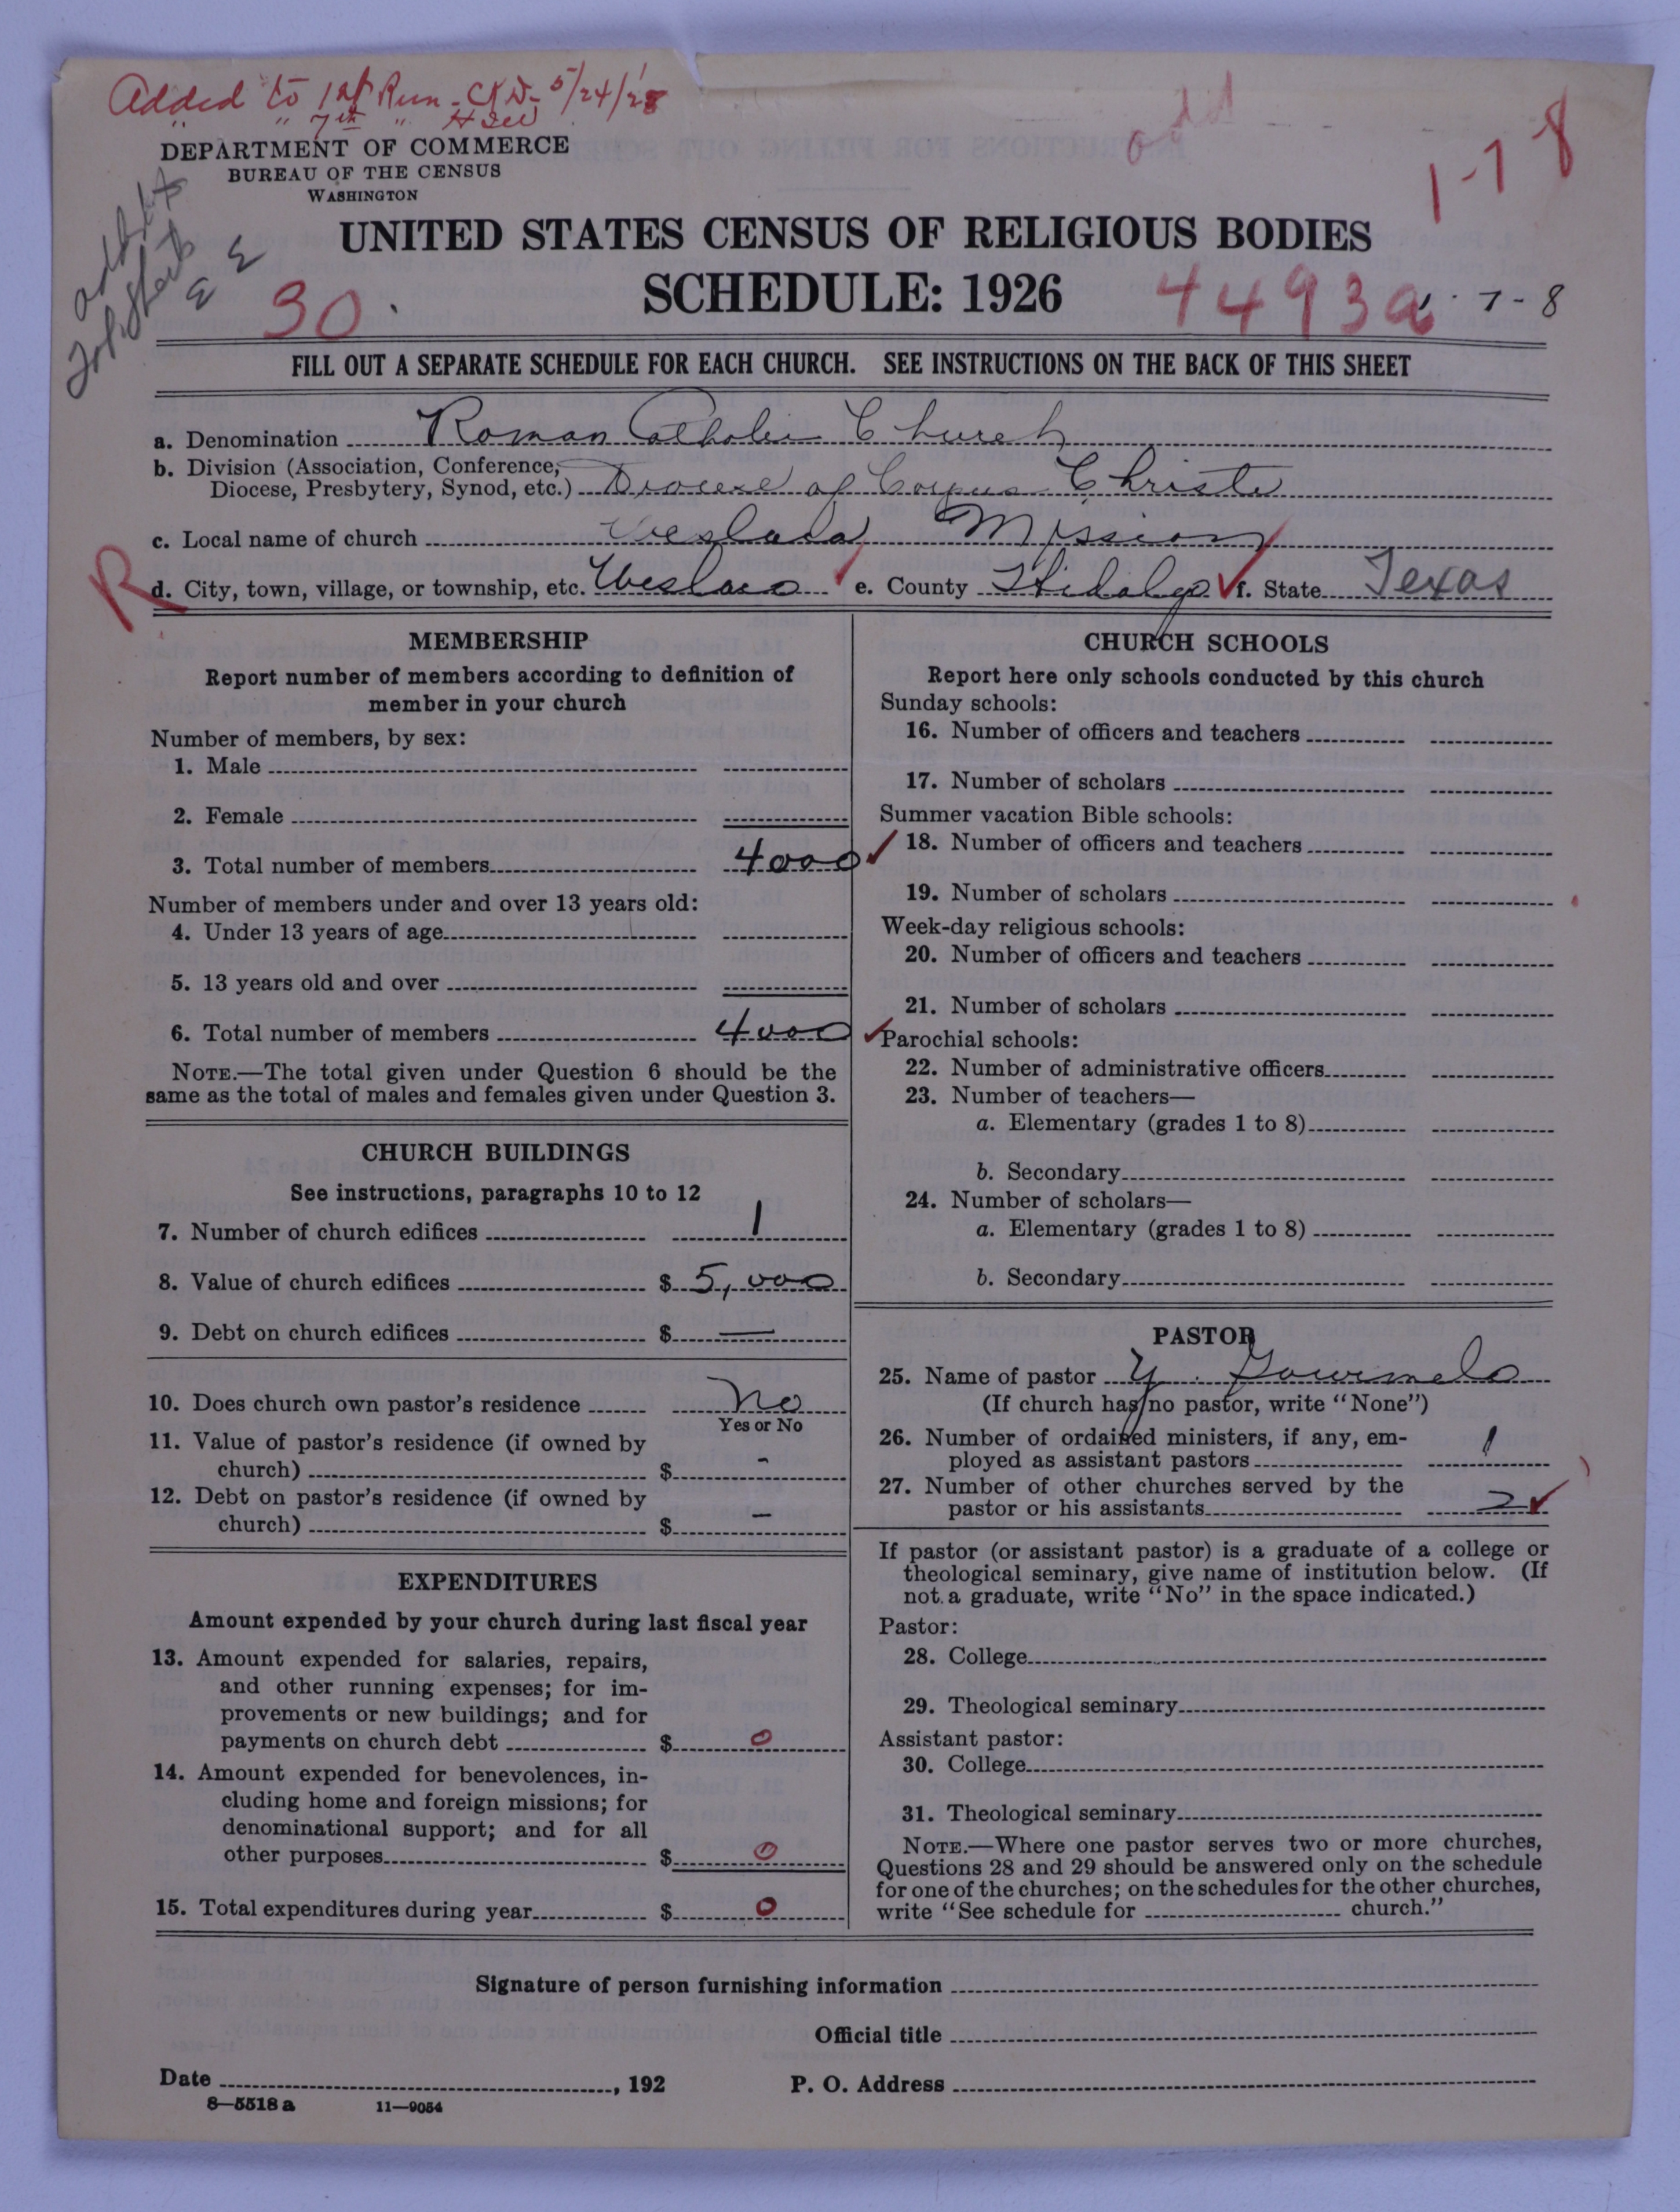 Added to 1st Run - C.K.D. 5/24/28
" " 7th " HSW
add
1-7-8
DEPARTMENT OF COMMERCE
BUREAU OF THE CENSUS
WASHINGTON
UNITED STATES CENSUS OF RELIGIOUS BODIES
SCHEDULE: 1926
30
4493a
1-7-8
FILL OUT A SEPARATE SCHEDULE FOR EACH CHURCH. SEE INSTRUCTIONS ON THE BACK OF THIS SHEET
a. Denomination Roman Catholic Church
b. Division (Association, Conference,
Diocese, Presbytery, Synod, etc.) Diocese of Corpus Christi
c. Local name of church Mission
R
d. City, town, village, or township, etc. Weslaco e. County Hidalgo f. State Texas
MEMBERSHIP
Report number of members according to definition of
member in your church
Number of members, by sex:
1. Male
2. Female
3. Total number of members 4000
Number of members under and over 13 years old:
4. Under 13 years of age
5. 13 years old and over
6. Total number of members 4000
NOTE.—The total given under Question 6 should be the
same as the total of males and females given under Question 3.
CHURCH BUILDINGS
See instructions, paragraphs 10 to 12
7. Number of church edifices 1
8. Value of church edifices $ 5,000
9. Debt on church edifices $ —
10. Does church own pastor's residence No
Yes or No
11. Value of pastor's residence (if owned by
church) $ -
12. Debt on pastor's residence (if owned by
church) $ -
EXPENDITURES
Amount expended by your church during last fiscal year
13. Amount expended for salaries, repairs,
and other running expenses; for im-
provements or new buildings; and for
payments on church debt $ 0
14. Amount expended for benevolences, in-
cluding home and foreign missions; for
denominational support; and for all
other purposes $ 0
15. Total expenditures during year $ 0
CHURCH SCHOOLS
Report here only schools conducted by this church
Sunday schools:
16. Number of officers and teachers
17. Number of scholars
Summer vacation Bible schools:
18. Number of officers and teachers
19. Number of scholars
Week-day religious schools:
20. Number of officers and teachers
21. Number of scholars
Parochial schools:
22. Number of administrative officers
23. Number of teachers—
a. Elementary (grades 1 to 8)
b. Secondary
24. Number of scholars—
a. Elementary (grades 1 to 8)
b. Secondary
PASTOR
25. Name of pastor Y.
(If church has no pastor, write "None")
26. Number of ordained ministers, if any, em-
ployed as assistant pastors 1
27. Number of other churches served by the
pastor or his assistants 2
If pastor (or assistant pastor) is a graduate of a college or
theological seminary, give name of institution below. (If
not a graduate, write "No" in the space indicated.)
Pastor:
28. College
29. Theological seminary
Assistant pastor:
30. College
31. Theological seminary
NOTE.—Where one pastor serves two or more churches,
Questions 28 and 29 should be answered only on the schedule
for one of the churches; on the schedules for the other churches,
write "See schedule for church."
Signature of person furnishing information
Official title
Date , 192 P. O. Address
8—5518 a 11—9054